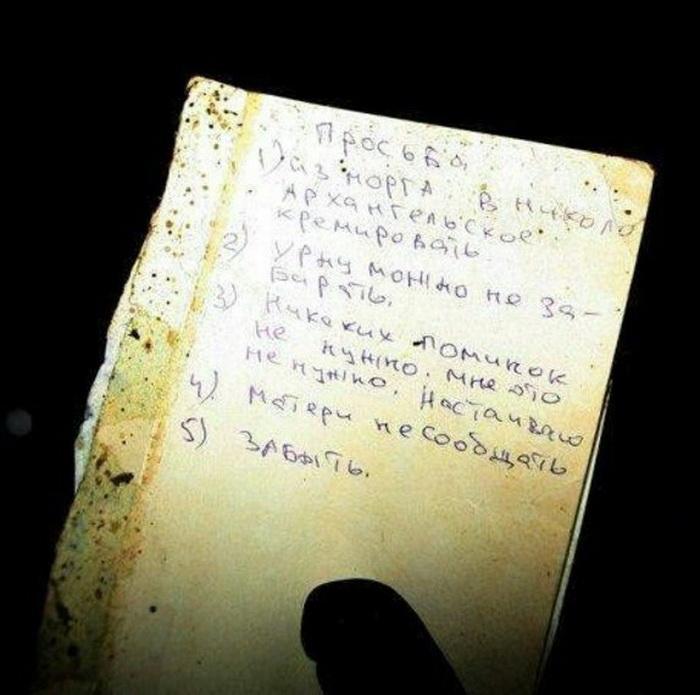 Просьба
1) из морга в Николо
Архангельское
кремировать
2) урну можно не за-
барать.
3) никаких поминок
не нужно. мне это
не нужно. настаиваю
4) матери не сообщать
5) забыть.